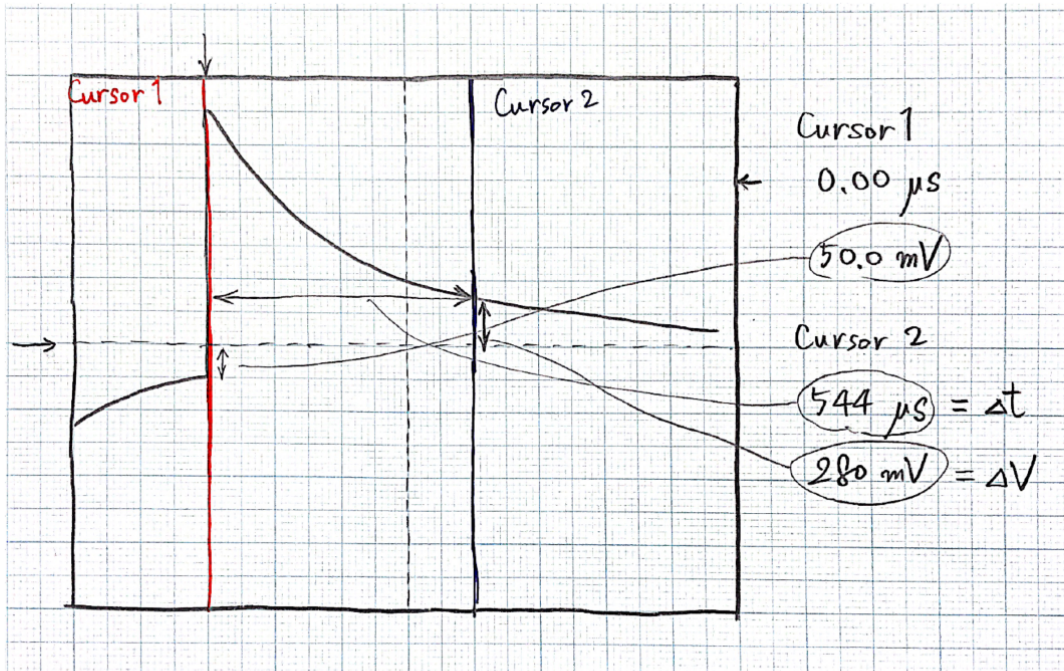 Cursor 1
Cursor 2
Cursor 1
0.00 μs
50.0 mV
Cursor 2
544 μs = Δt
280 mV = ΔV